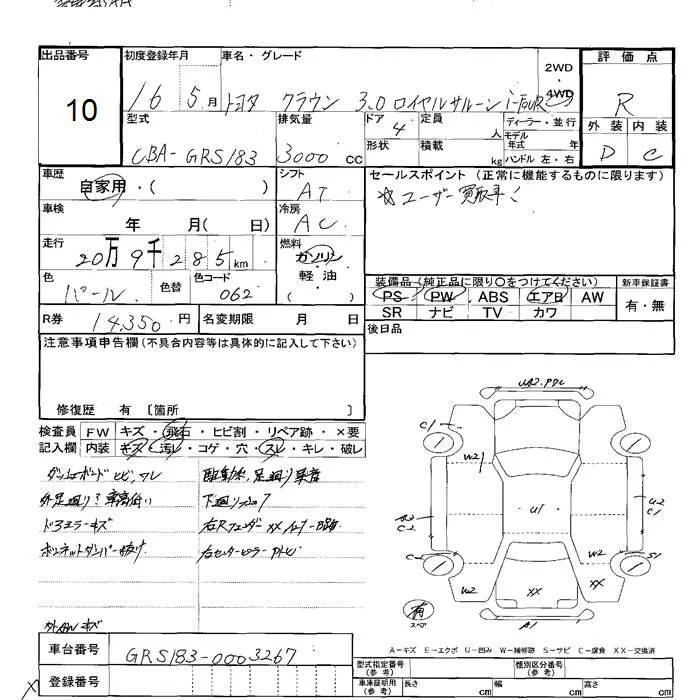 出品番号
10
初度登録年月
16 5月
車名・グレード
トヨタ クラウン 3.0 ロイヤルサルーン i-Four
2WD
・
4WD
評価点
R
外装 内装
D C
型式
CBA-GRS183
排気量
3000 cc
ドア
4
定員
人
形状
積載
kg
ディーラー・並行
モデル
年式 年
ハンドル 左・右
車歴
自家用・( )
シフト
AT
車検
年 月( 日)
冷房
AC
走行
20万9千285km
燃料
ガソリン
・
軽・油
( )
色
パール
色替
色コード
062
R券
14,350円
名変期限 月 日
セールスポイント (正常に機能するものに限ります)
☆ユーザー買取車!
装備品(純正品に限り〇をつけてください)
PS PW ABS エアB AW
SR ナビ TV カワ
新車保証書
有・無
後日品
注意事項申告欄(不具合内容等は具体的に記入して下さい)
修復歴 有 [箇所 ]
検査員
記入欄
FW キズ・飛石・ヒビ割・リペア跡・×要
内装 キズ・汚レ・コゲ・穴・スレ・キレ・破レ
ダッシュボード ヒビ、
外足廻り 車高低い
ドアミラーキズ
ボンネットダンパー抜け
足廻り
下廻り
右Rフェンダー XX インナー
右センターピラー
キズ
U1
W2
W2
W2
XX
XX
C1
S1
A1
有
スペア
A-キズ E-エクボ U-凹み W-補修跡 S-サビ C-腐食 XX-交換済
車台番号
GRS183-0003267
登録番号
型式指定番号
(参考)
類別区分番号
(参考)
車庫証明用
(参考)
長さ cm
幅 cm
高さ cm